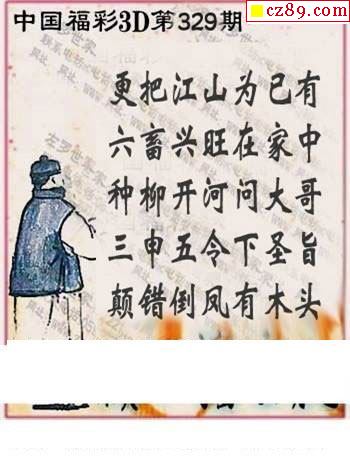 cz89.com
中国福彩3D第329期
更把江山为己有
六畜兴旺在家中
种柳开河问大哥
三申五令下圣旨
颠错倒凤有木头